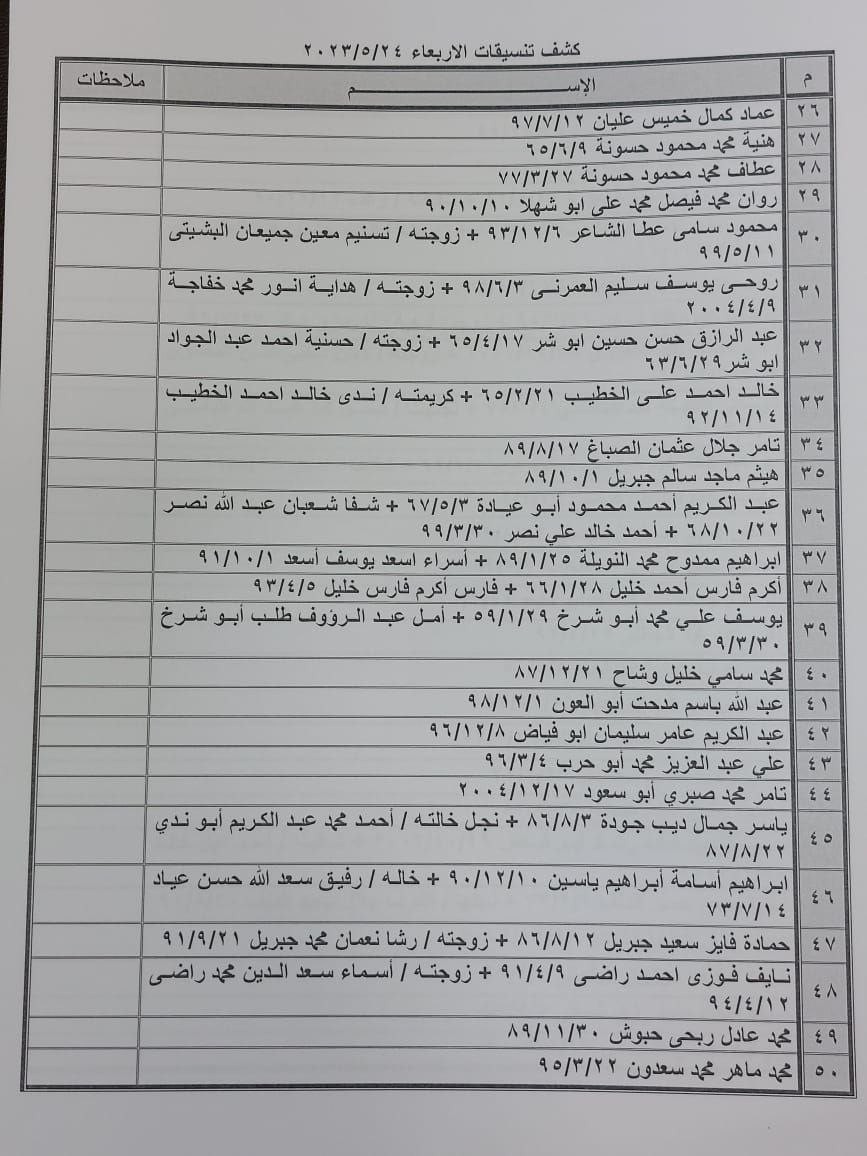 كشف تنسيقات الاربعاء ٢٠٢٣/٥/٢٤
م الإســـــم ملاحظات
٢٦ عماد كمال خميس عليان ٩٧/٧/١٢
٢٧ هنية محمد محمود حسونة ٦٥/٦/٩
٢٨ عطاف محمد محمود حسونة ٧٧/٣/٢٧
٢٩ روان محمد فيصل محمد على ابو شهلا ٩٠/١٠/١٠
٣٠ محمود سامى عطا الشاعر ٩٣/١٢/٦ + زوجته / تسنيم معين جميعان البشيتى
٩٩/٥/١١
٣١ روحى يوسف سليم العمرنى ٩٨/٦/٣ + زوجته / هداية انور محمد خفاجة
٢٠٠٤/٤/٩
٣٢ عبد الرازق حسن حسين ابو شر ٦٥/٤/١٧ + زوجته / حسنية احمد عبد الجواد
ابو شر ٦٣/٦/٢٩
٣٣ خالد احمد على الخطيب ٦٥/٢/٢١ + كريمته / ندى خالد احمد الخطيب
٩٢/١١/١٤
٣٤ تامر جلال عثمان الصباغ ٨٩/٨/١٧
٣٥ هيثم ماجد سالم جبريل ٨٩/١٠/١
٣٦ عبد الكريم أحمد محمود أبو عيادة ٦٧/٥/٣ + شفا شعبان عبد الله نصر
٦٨/١٠/٢٢ + أحمد خالد علي نصر ٩٩/٣/٣٠
٣٧ ابراهيم ممدوح محمد النويلة ٨٩/١/٢٥ + أسراء اسعد يوسف أسعد ٩١/١٠/١
٣٨ أكرم فارس أحمد خليل ٦٦/١/٢٨ + فارس أكرم فارس خليل ٩٣/٤/٥
٣٩ يوسف علي محمد أبو شرخ ٥٩/١/٢٩ + أمل عبد الرؤوف طلب أبو شرخ
٥٩/٣/٣٠
٤٠ محمد سامي خليل وشاح ٨٧/١٢/٢١
٤١ عبد الله باسم مدحت أبو العون ٩٨/١٢/١
٤٢ عبد الكريم عامر سليمان ابو فياض ٩٦/١٢/٨
٤٣ علي عبد العزيز محمد أبو حرب ٩٦/٣/٤
٤٤ تامر محمد صبري أبو سعود ٢٠٠٤/١٢/١٧
٤٥ ياسر جمال ديب جودة ٨٦/٨/٣ + نجل خالته / أحمد محمد عبد الكريم أبو ندي
٨٧/٨/٢٢
٤٦ ابراهيم أسامة أبراهيم ياسين ٩٠/١٢/١٠ + خاله / رفيق سعد الله حسن عياد
٧٣/٧/١٤
٤٧ حمادة فايز سعيد جبريل ٨٦/٨/١٢ + زوجته / رشا نعمان محمد جبريل ٩١/٩/٢١
٤٨ نايف فوزى احمد راضى ٩١/٤/٩ + زوجته / أسماء سعد الدين محمد راضى
٩٤/٤/١٢
٤٩ محمد عادل ربحى حبوش ٨٩/١١/٣٠
٥٠ محمد ماهر محمد سعدون ٩٥/٣/٢٢